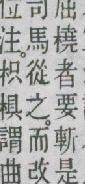 屈橈者要斬是
司馬從之。而改
位注。枳椇謂曲